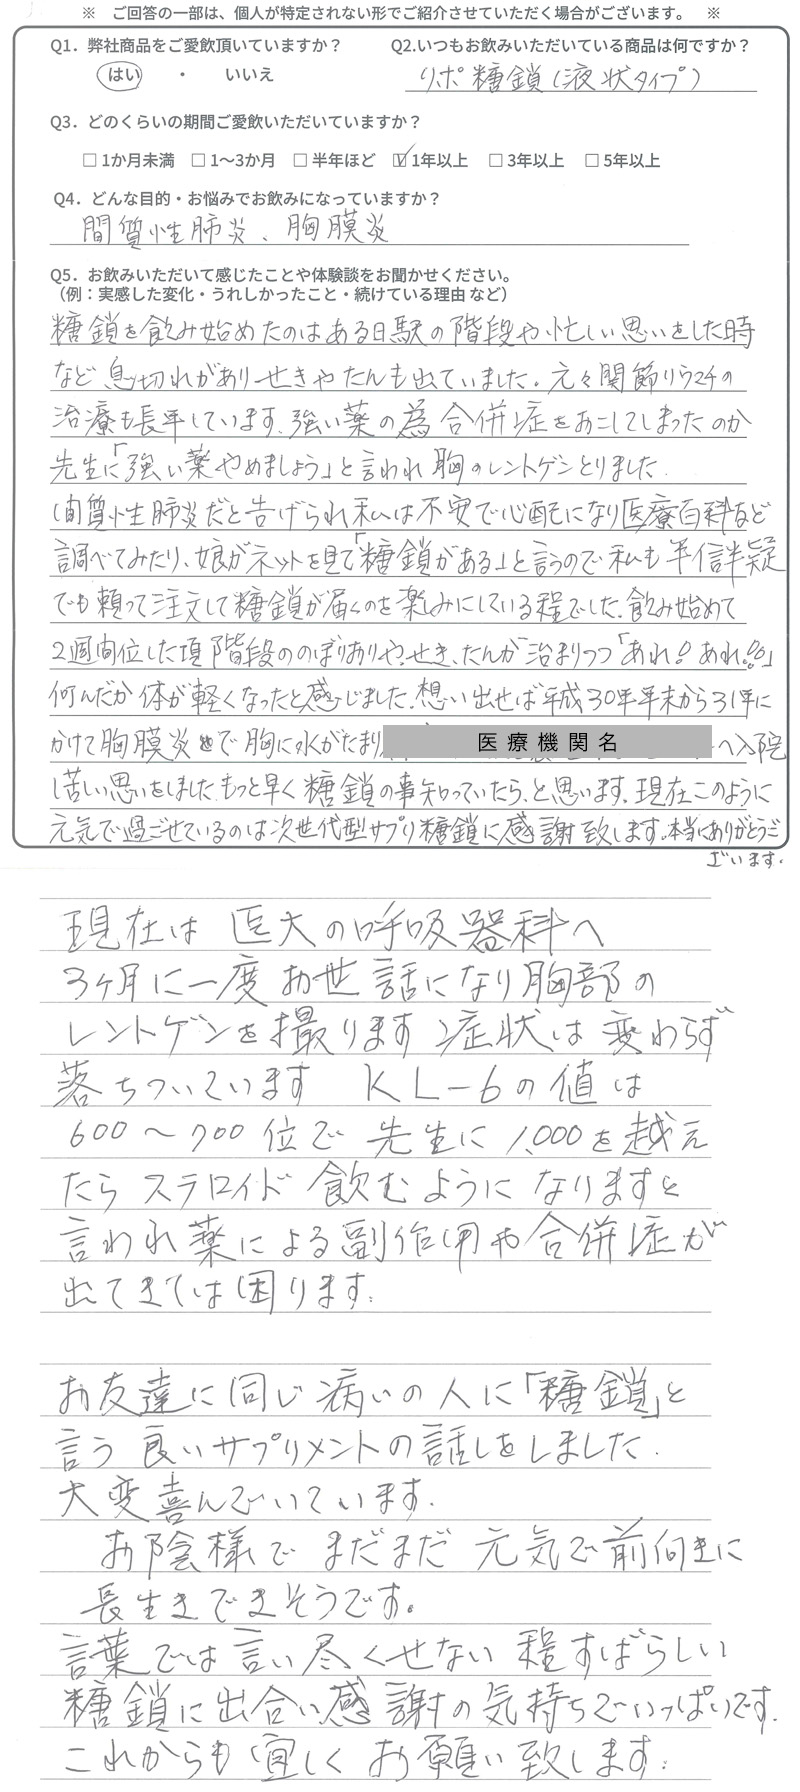 ※ ご回答の一部は、個人が特定されない形でご紹介させていただく場合がございます。 ※
Q1．弊社商品をご愛飲頂いていますか？
はい ・ いいえ
Q2.いつもお飲みいただいている商品は何ですか？
リポ糖鎖(液状タイプ)
Q3．どのくらいの期間ご愛飲いただいていますか？
□ 1か月未満 □ 1〜3か月 □ 半年ほど ☑ 1年以上 □ 3年以上 □ 5年以上
Q4．どんな目的・お悩みでお飲みになっていますか？
間質性肺炎、胸膜炎
Q5．お飲みいただいて感じたことや体験談をお聞かせください。
（例：実感した変化・うれしかったこと・続けている理由 など）
糖鎖を飲み始めたのはある日駅の階段や忙しい思いをした時
など息切れがありせきやたんも出ていました。元々関節リウマチの
治療も長年しています。強い薬の為合併症をおこしてしまったのか
先生に「強い薬やめましょう」と言われ胸のレントゲンとりました.
間質性肺炎だと告げられ私は不安で心配になり医療百科など
調べてみたり、娘がネットを見て「糖鎖がある」と言うので私も半信半疑
でも頼って注文して糖鎖が届くのを楽しみにしている程でした。飲み始めて
2週間位した頃階段ののぼりおりや、せき、たんが治まりつつ「あれ!あれ!!」
何んだか体が軽くなったと感じました。想い出せば平成30年年末から31年に
かけて胸膜炎で胸に水がたまり
医療機関名
へ入院
苦しい思いをしました。もっと早く糖鎖の事知っていたら、と思います。現在このように
元気で過ごせているのは次世代型サプリ糖鎖に感謝致します。本当にありがとうご
ざいます。
現在は医大の呼吸器科へ
3ヶ月に一度お世話になり胸部の
レントゲンを撮ります 症状は変わらず
落ちついています KL-6の値は
600〜700位で先生に1,000を越え
たらステロイド飲むようになりますと
言われ薬による副作用や合併症が
出てきては困ります.
お友達に同じ病いの人に「糖鎖」と
言う良いサプリメントの話しをしました.
大変喜んでいています.
お陰様でまだまだ元気で前向きに
長生きできそうです。
言葉では言い尽くせない程すばらしい
糖鎖に出合い感謝の気持ちでいっぱいです.
これからも宜しくお願い致します.